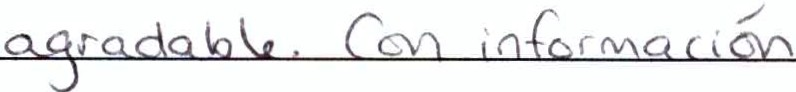 agradable. Con información